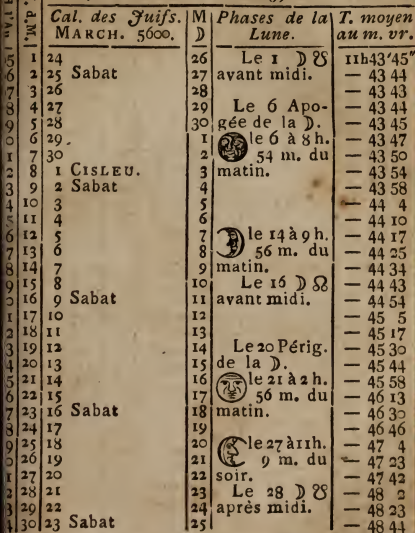 Cal. des Juifs. M Phases de la T. moyen
d.M. MARCH. 5600. ☽ Lune. au m. vr.
1 24 26 Le 1 ☽ ☋ 11h43'45"
2 25 Sabat 27 avant midi. — 43 44
3 26 28 — 43 44
4 27 29 Le 6 Apo- — 43 44
5 28 30 gée de la ☽. — 43 45
6 29 1 le 6 à 8 h. — 43 47
7 30 2 54 m. du — 43 50
8 1 CISLEU. 3 matin. — 43 54
9 2 Sabat 4 — 43 58
10 3 5 — 44 4
11 4 6 — 44 10
12 5 7 le 14 à 9 h. — 44 17
13 6 8 56 m. du — 44 25
14 7 9 matin. — 44 34
15 8 10 Le 16 ☽ ☊ — 44 43
16 9 Sabat 11 avant midi. — 44 54
17 10 12 — 45 5
18 11 13 — 45 17
19 12 14 Le 20 Périg. — 45 30
20 13 15 de la ☽. — 45 44
21 14 16 le 21 à 2 h. — 45 58
22 15 17 56 m. du — 46 13
23 16 Sabat 18 matin. — 46 30
24 17 19 — 46 46
25 18 20 le 27 à 11h. — 47 4
26 19 21 9 m. du — 47 23
27 20 22 soir. — 47 42
28 21 23 Le 28 ☽ ☋ — 48 2
29 22 24 après midi. — 48 23
30 23 Sabat 25 — 48 44